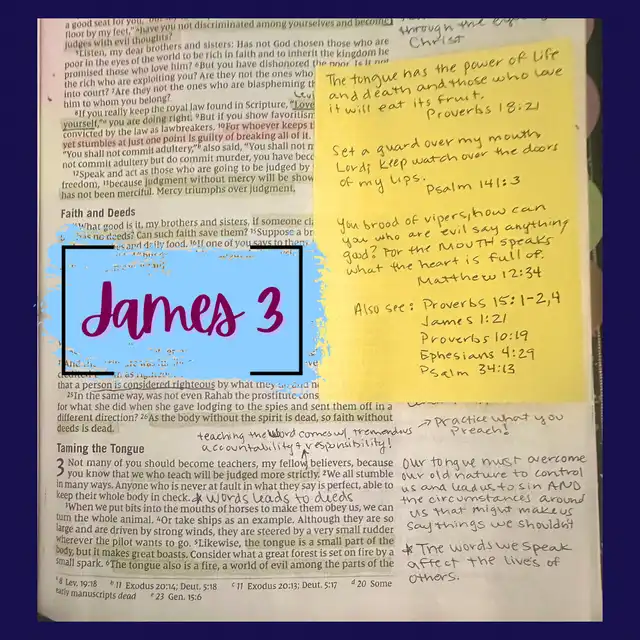 a good seat for you,
floor by my feet," have you not discriminated among yourselves and become
judges with evil thoughts?
5Listen, my dear brothers and sisters: Has not God chosen those who are
poor in the eyes of the world to be rich in faith and to inherit the kingdom he
promised those who love him? 6But you have dishonored the poor. Is it not
the rich who are exploiting you? Are they not the ones who
into court? 7Are they not the ones who are blaspheming th
him to whom you belong?
8If you really keep the royal law found in Scripture, "Love
yourself," you are doing right. 9But if you show favoritism
convicted by the law as lawbreakers. 10For whoever keeps t
yet stumbles at just one point is guilty of breaking all of it.
"You shall not commit adultery," also said, "You shall not m
not commit adultery but do commit murder, you have beco
12Speak and act as those who are going to be judged by
freedom, because judgment without mercy will be show
has not been merciful. Mercy triumphs over judgment.
Faith and Deeds
What good is it, my brothers and sisters, if someone cla
has no deeds? Can such faith save them? 15Suppose a br
es and daily food. 16If one of you says to them
James 3
that a person is considered righteous by what they
25In the same way, was not even Rahab the prostitute cons
for what she did when she gave lodging to the spies and sent them off in a
different direction? 26As the body without the spirit is dead, so faith without
deeds is dead.
teaching the Word comes w/ tremendous
accountability & responsibility!
Taming the Tongue
3 Not many of you should become teachers, my fellow believers, because
you know that we who teach will be judged more strictly. 2We all stumble
in many ways. Anyone who is never at fault in what they say is perfect, able to
keep their whole body in check. * Words leads to deeds
3When we put bits into the mouths of horses to make them obey us, we can
turn the whole animal. 4Or take ships as an example. Although they are so
large and are driven by strong winds, they are steered by a very small rudder
wherever the pilot wants to go. 5Likewise, the tongue is a small part of the
body, but it makes great boasts. Consider what a great forest is set on fire by a
small spark. 6The tongue also is a fire, a world of evil among the parts of the
a 8 Lev. 19:18 b 11 Exodus 20:14; Deut. 5:18 c 11 Exodus 20:13; Deut. 5:17 d 20 Some
early manuscripts dead e 23 Gen. 15:6
through the
Christ
The tongue has the power of life
and death and those who love
it will eat its fruit.
Proverbs 18:21
Set a guard over my mouth,
Lord; keep watch over the doors
of my lips.
Psalm 141:3
You brood of vipers, how can
you who are evil say anything
good? For the MOUTH speaks
what the heart is full of.
Matthew 12:34
Also see: Proverbs 15:1-2,4
James 1:21
Proverbs 10:19
Ephesians 4:29
Psalm 34:13
→ Practice what you
Preach!
Our tongue must overcome
our old nature to control
us and leads to sin AND
the circumstances around
us that might make us
say things we shouldn't
* The words we speak
affect the lives of
others.